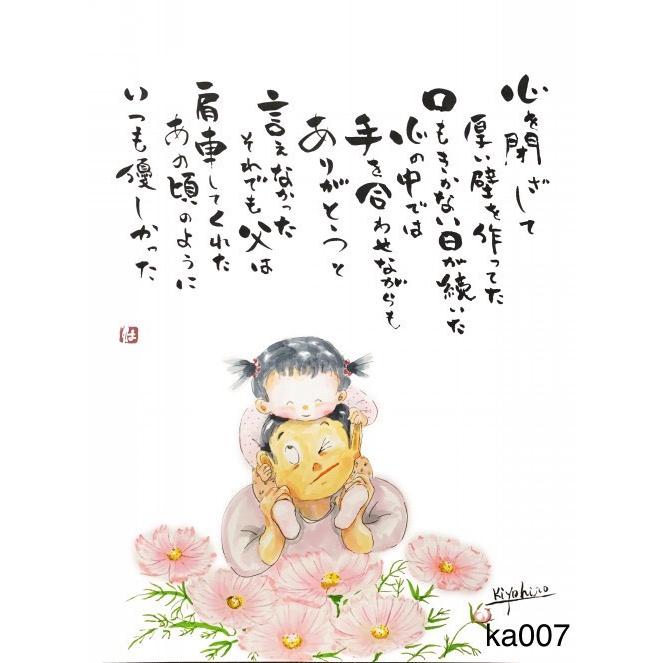 心を閉ざして
厚い壁を作ってた
口もきかない日が続いた
心の中では
手を合わせながらも
ありがとうと
言えなかった
それでも父は
肩車してくれた
あの頃のように
いつも優しかった
Kiyohiro
ka007